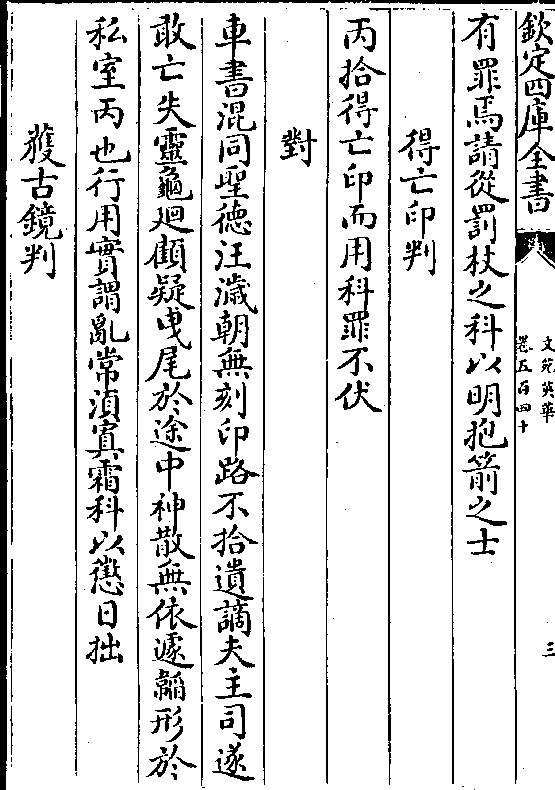 欽定四庫全書
文苑英華
卷五百四十
三
有罪焉請從罰杖之科以明抱箭之士
得亡印判
丙拾得亡印而用科罪不伏
對
車書混同聖德汪濊朝無刻印路不拾遺謫夫主司遂
敢亡失靈龜廻顧疑曳尾於途中神散無依遽韜形於
私室丙也行用實謂亂常湏寘霜科以懲日拙
獲古鏡判